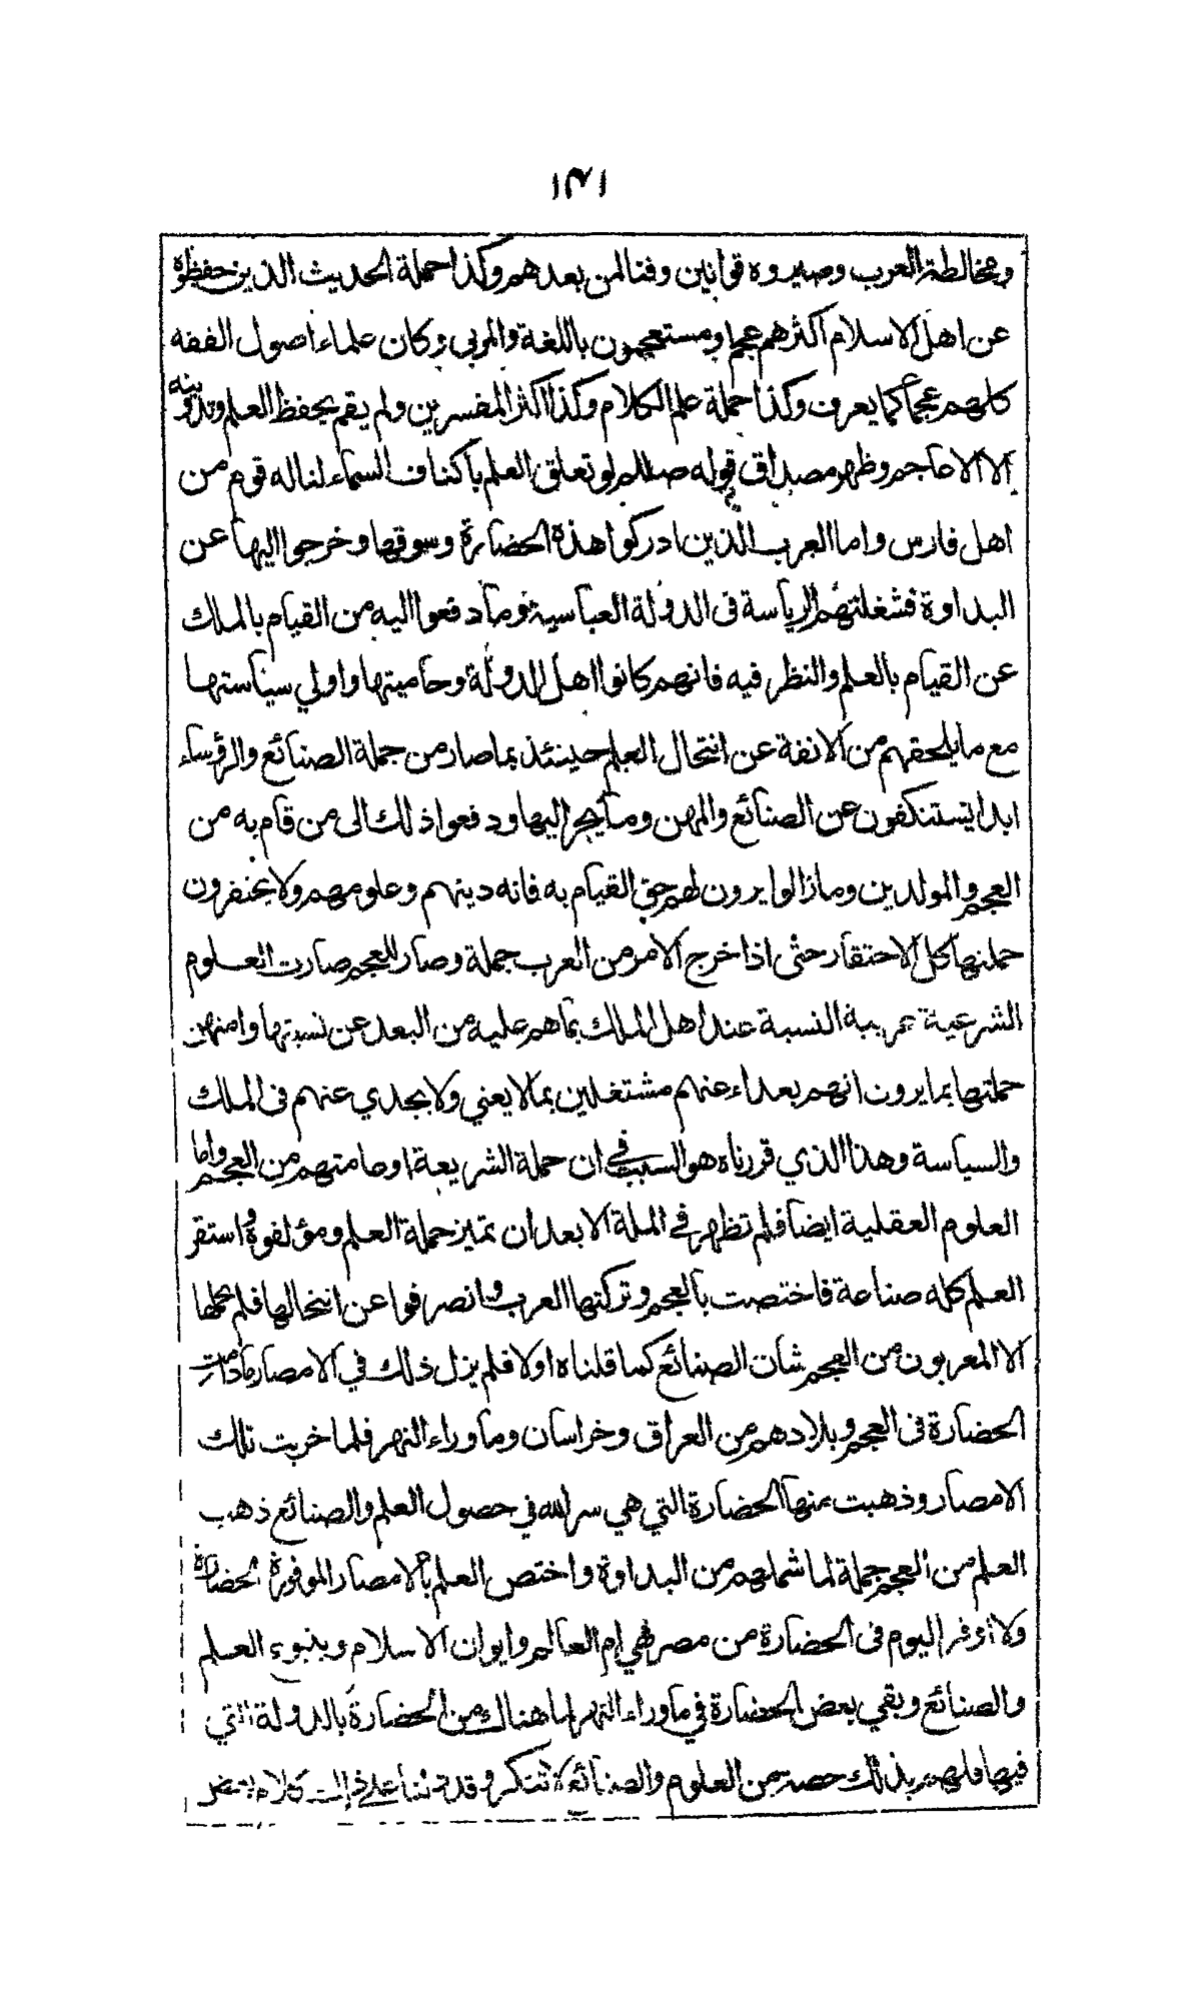 ١٣١
ومخالطة العرب وصيروه قوانين وفنا لمن بعدهم وكذا حملة الحديث الذين حفظوه
عن اهل الاسلام اكثرهم عجم او مستعجمون باللغة والمربى وكان علماء اصول الفقه
كلهم عجما كما يعرف وكذا حملة علم الكلام وكذا اكثر المفسرين ولم يقم بحفظ العلم وتدوينه
الا الاعاجم وظهر مصداق قوله صللم لو تعلق العلم باكناف السماء لناله قوم من
اهل فارس واما العرب الذين ادركوا هذه الحضارة وسوقها وخرجوا اليها عن
البداوة فشغلتهم الرياسة فى الدولة العباسية وما دفعوا اليه من القيام بالملك
عن القيام بالعلم والنظر فيه فانهم كانوا اهل الدولة وحاميتها واولي سياستها
مع ما يلحقهم من الانفة عن انتحال العلم حينئذ بما صار من جملة الصنائع والرؤساء
ابدا يستنكفون عن الصنائع والمهن وما يجر اليها ودفعوا ذلك الى من قام به من
العجم والمولدين وما زالوا يرون لهم حق القيام به فانه دينهم وعلومهم ولا يحتقرون
حملتها كل الاحتقار حتى اذا خرج الامر من العرب جملة وصار للعجم صارت العلوم
الشرعية غريبة النسبة عند اهل الملك بما هم عليه من البعد عن نسبتها وامتهن
حملتها بما يرون انهم بعداء عنهم مشتغلين بما لا يعني ولا يجدي عنهم فى الملك
والسياسة وهذا الذي قررناه هو السبب في ان حملة الشريعة او عامتهم من العجم واما
العلوم العقلية ايضا فلم تظهر في الملة الا بعد ان تميز حملة العلم ومؤلفوه واستقر
العلم كله صناعة فاختصت بالعجم وتركتها العرب وانصرفوا عن انتحالها فلم يحملها
الا المعربون من العجم شان الصنائع كما قلناه اولا فلم يزل ذلك في الامصار ما دامت
الحضارة فى العجم وبلادهم من العراق وخراسان وما وراء النهر فلما خربت تلك
الامصار وذهبت منها الحضارة التي هي سر الله في حصول العلم والصنائع ذهب
العلم من العجم جملة لما شملهم من البداوة واختص العلم بالامصار الموفورة الحضارة
ولا اوفر اليوم فى الحضارة من مصر فهي ام العالم وايوان الاسلام وينبوع العلم
والصنائع وبقي بعض الحضارة في ما وراء النهر لما هناك من الحضارة بالدولة التي
فيها فلهم بذلك حصة من العلوم والصنائع لا تنكر وقد دلنا على ذلك كلام بعض